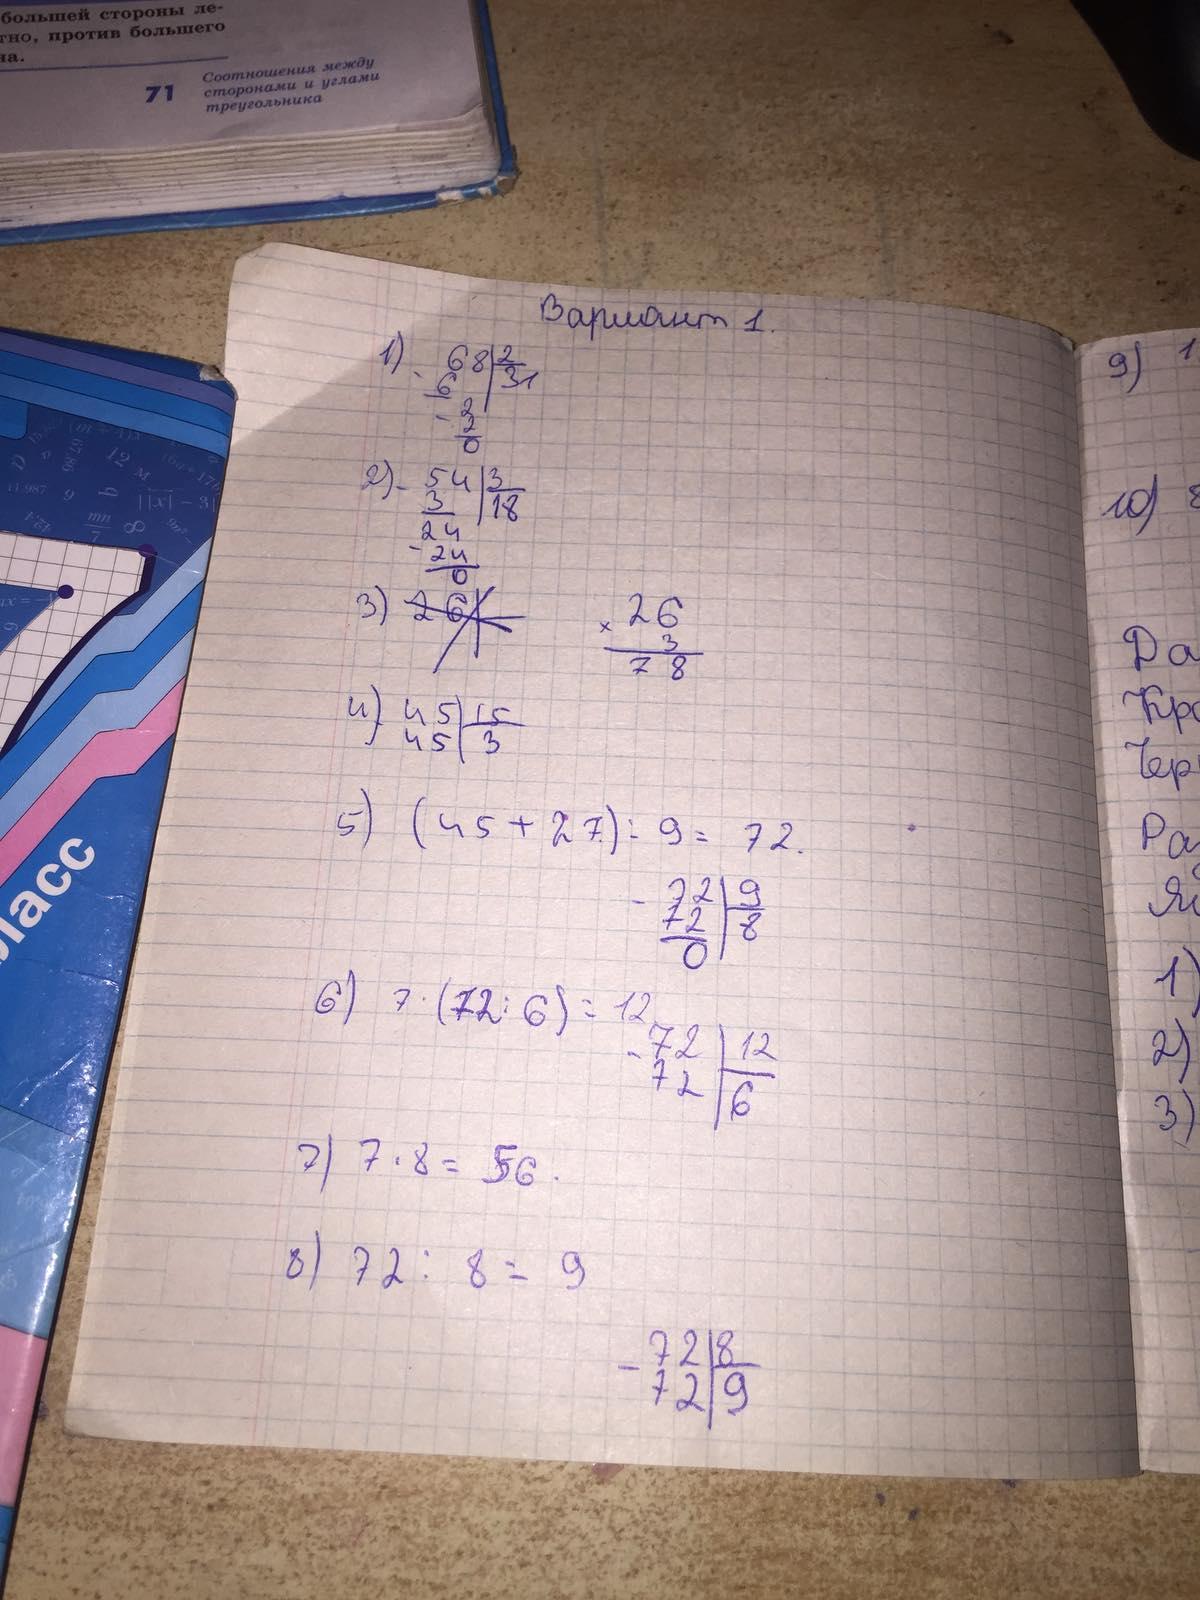 большей стороны ле-
тно, против большего
на.
71
Соотношения между
сторонами и углами
треугольника
Вариант 1.
1) - 68 | 2
6 | 31
- 2
2
0
2) - 54 | 3
3 | 18
24
- 24
0
3) 26
× 26
3
78
4) 45 | 15
45 | 3
5) (45 + 27) : 9 = 72.
- 72 | 9
72 | 8
0
6) 7 · (72 : 6) = 12
- 72 | 12
72 | 6
7) 7 · 8 = 56.
8) 72 : 8 = 9
- 72 | 8
72 | 9
9) 1
10) 8
Да
Кра
Чер
Раз
1)
2)
3)
ласс